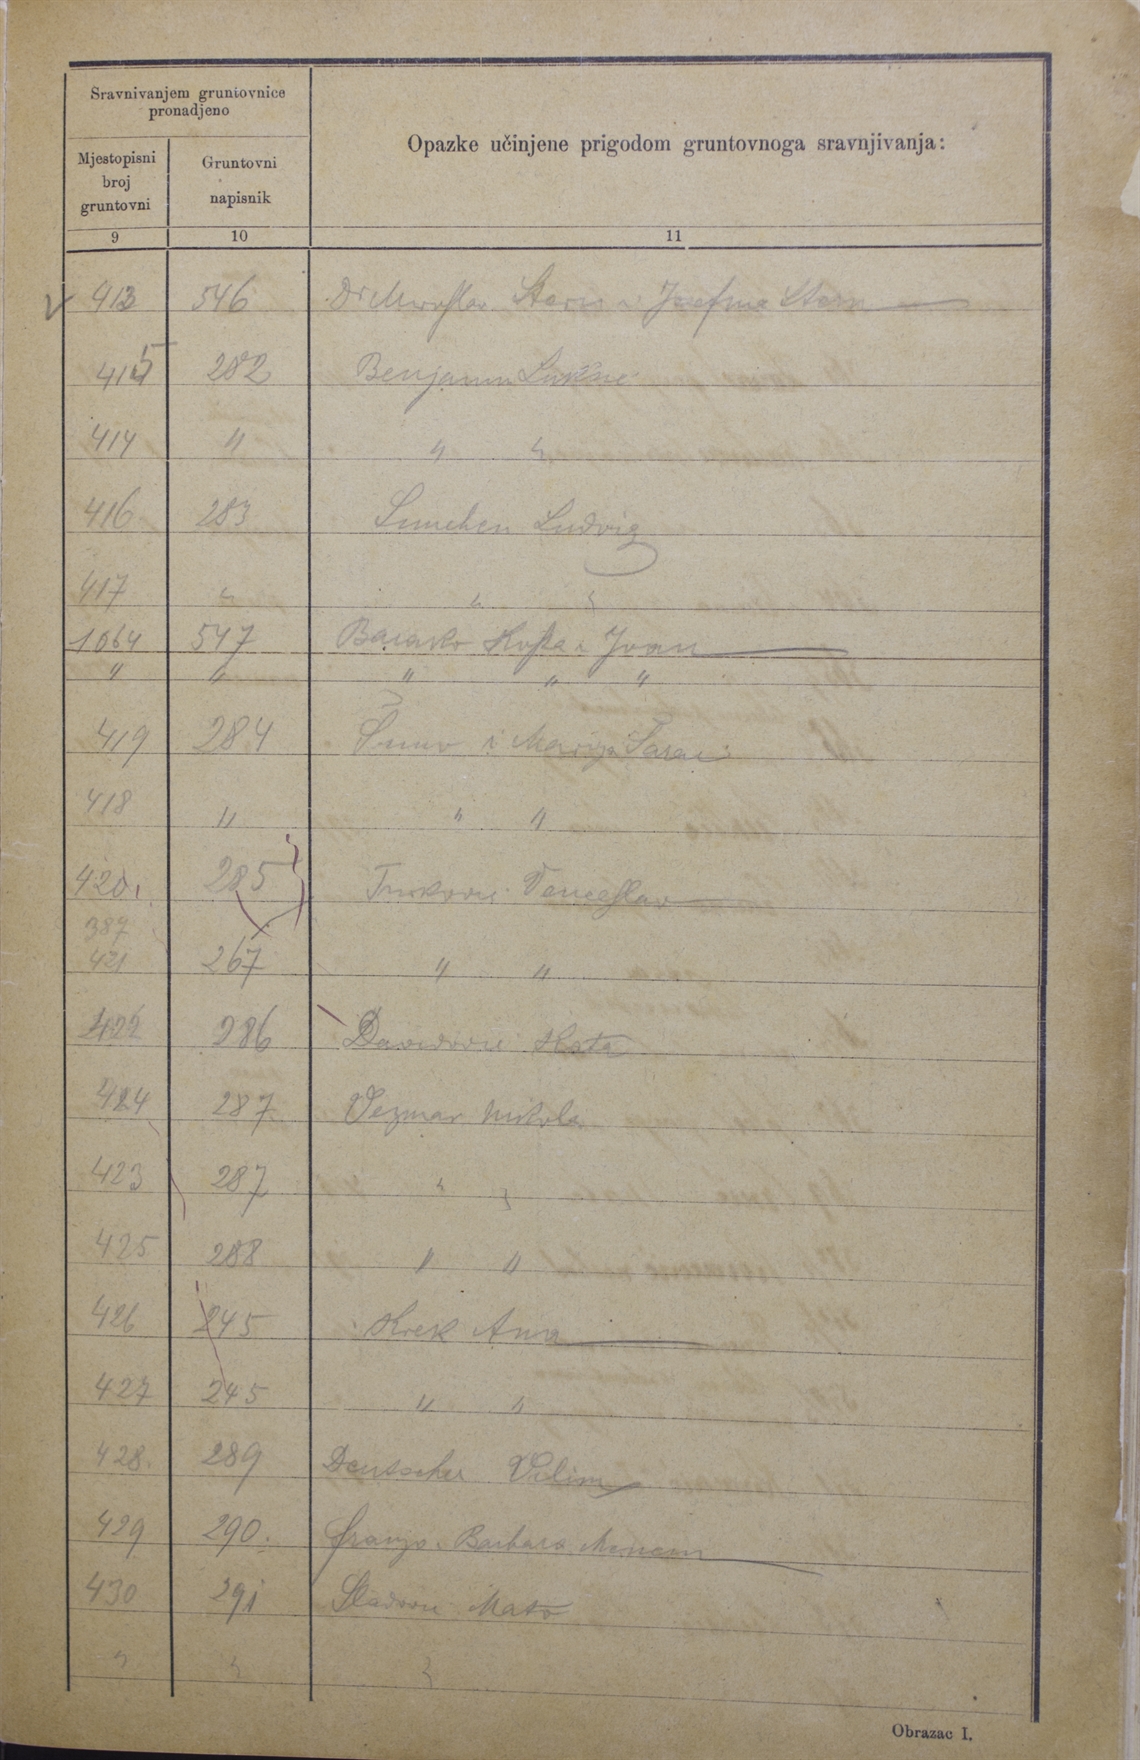 Sravnivanjem gruntovnice
pronadjeno
Opazke učinjene prigodom gruntovnoga sravnjivanja:
Mjestopisni
broj
gruntovni
Gruntovni
napisnik
9 10 11
413 546 Dr Miroslav Stern i Josefina Stern
415 282 Benjamin
414 " " "
416 283 Ludvig
417 " " "
1064 547 Kosta i Ivan
" " " " "
419 284 i Marija
418 " " "
420. 285 Venceslav
387
421 267 " "
422 286 Davidović Kata
424 287 Vezmar Nikola
423 287 " "
425 288 " "
426 245 Krek Ana
427 245 " "
428. 289 Deutscher Vilim
429 290. Franjo i Barbara
430 291 Mato
" " "
Obrazac I.